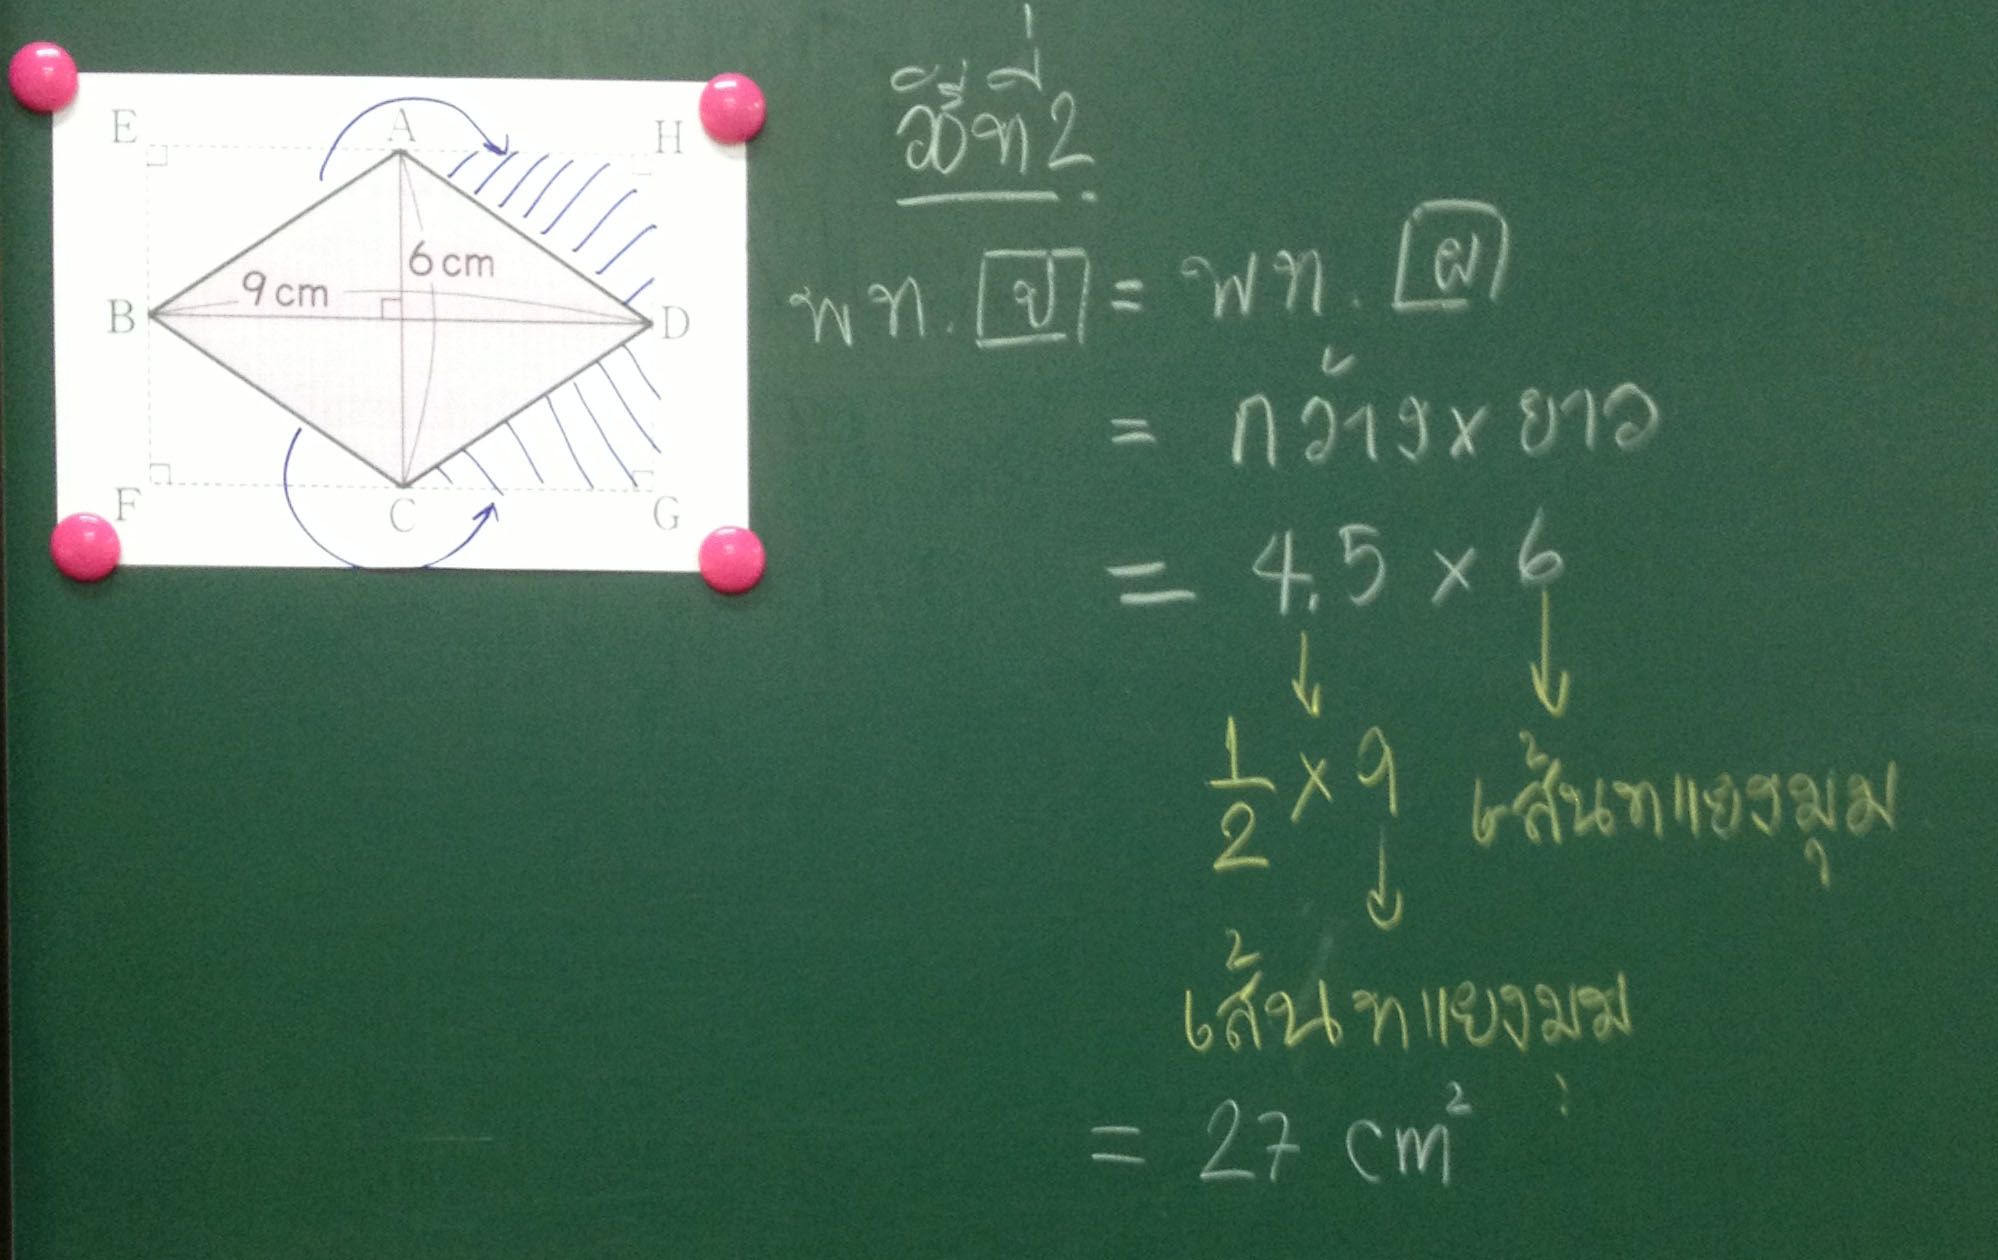 E A H
6 cm
9 cm
B D
F C G
วิธีที่ 2
พท. ข = พท. ผ
= กว้าง × ยาว
= 4.5 × 6
1/2 × 9 เส้นทแยงมุม
เส้นทแยงมุม
= 27 cm²